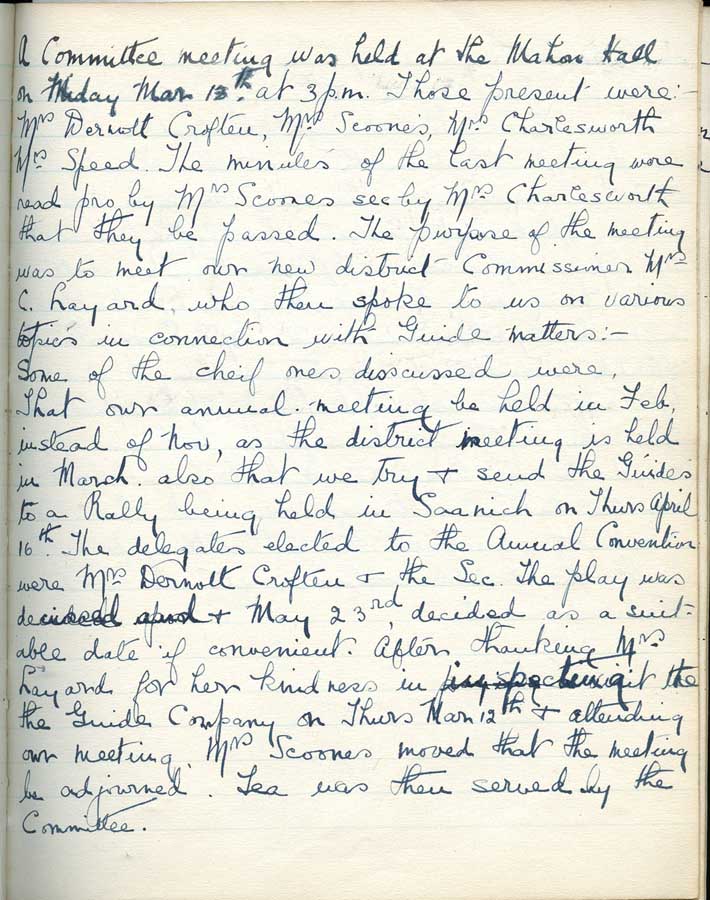 A Committee meeting was held at the Mahon Hall
on Friday Mar 13th. at 3 p.m. Those present were:-
Mrs Dermott Crofton, Mrs Scoones, Mrs Charlesworth
Mrs Speed. The minutes of the last meeting were
read pro, by Mrs Scoones sec by Mrs Charlesworth
that they be passed. The purpose of the meeting
was to meet our new district Commissioner Mrs
C. Layard, who then spoke to us on various
topics in connection with Guide matters:-
Some of the cheif ones disscussed were,
That our annual meeting be held in Feb,
instead of Nov, as the district meeting is held
in March. also that we try & send the Guides
to a Rally being held in Saanich on Thurs April
16th. The delegates elected to the Annual Convention
were Mrs Dermott Crofton & the Sec. The play was
& May 23rd, decided as a suit-
able date if convenient. After thanking Mrs
Layard for her kindness in the
the Guide Company on Thurs Mar 12th & attending
our meeting, Mrs Scoones moved that the meeting
be adjourned. Tea was then served by the
Committee.